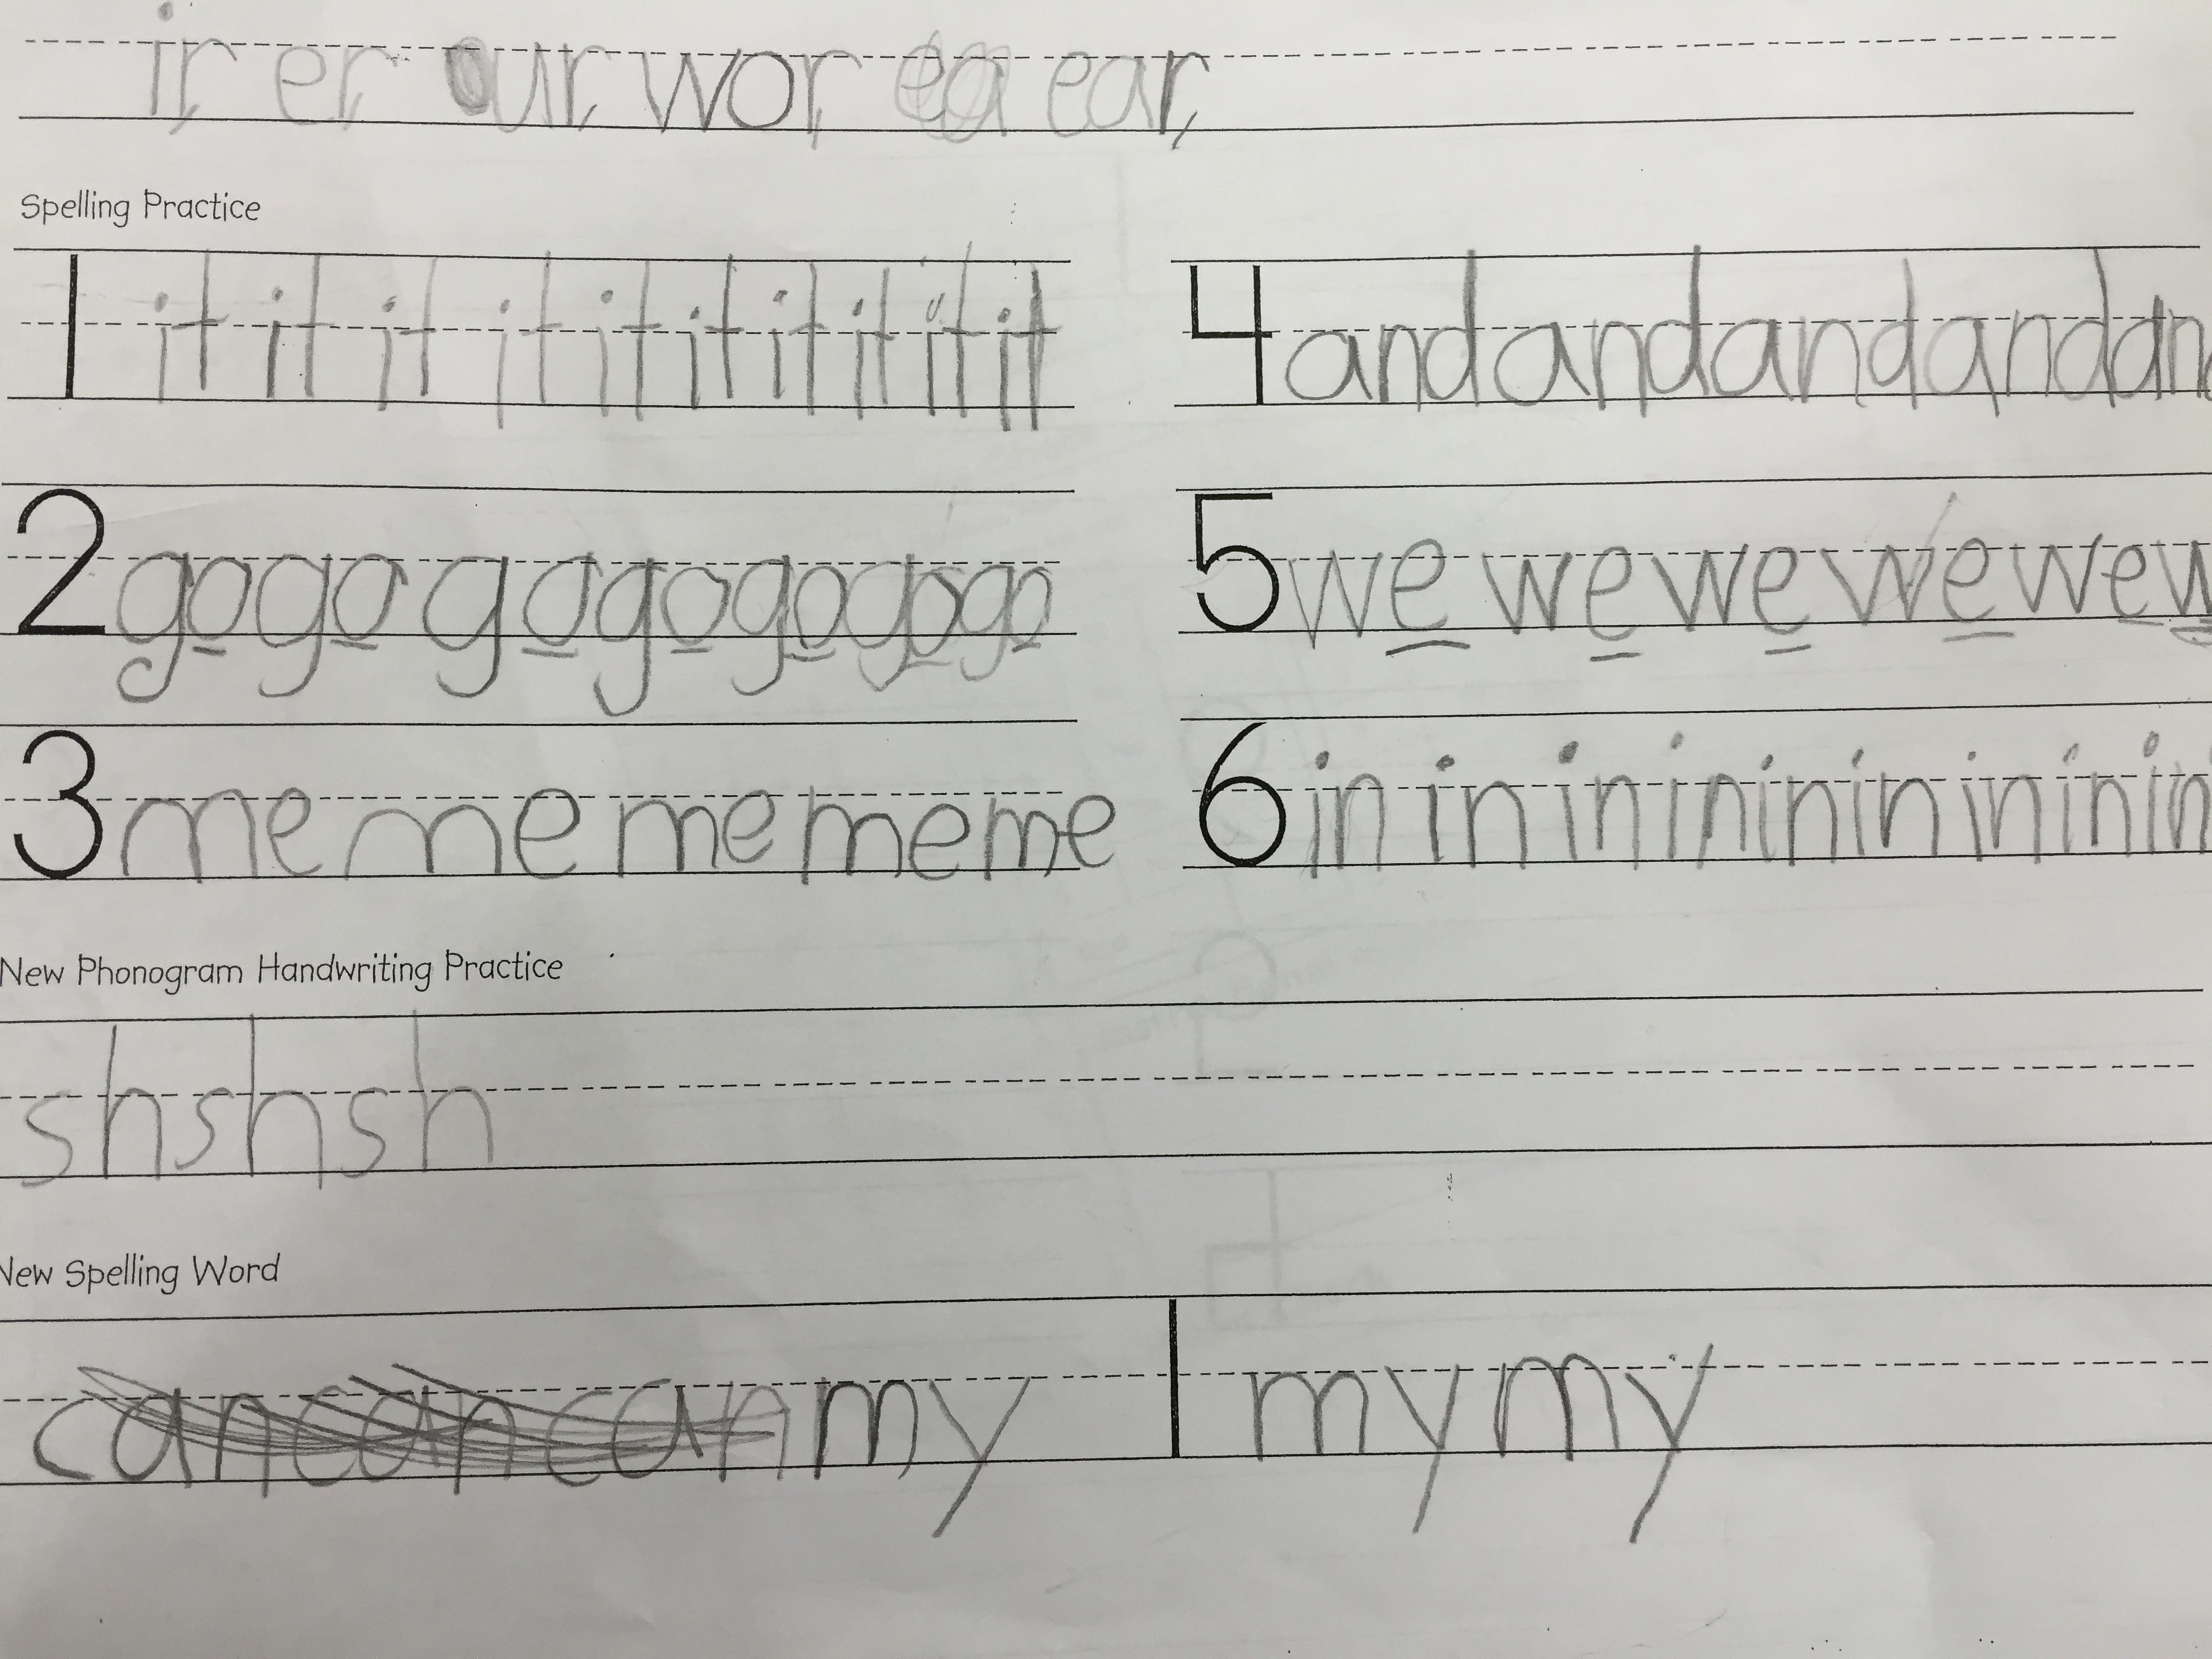 ir, er, ur, wor, ear,
Spelling Practice
1 it it it it it it it it it it
4 and and and and an
2 go go go go go go go
5 we we we we we
3 me me me me me
6 in in in in in in in in in
New Phonogram Handwriting Practice
sh sh sh
New Spelling Word
can can can my
1 my my